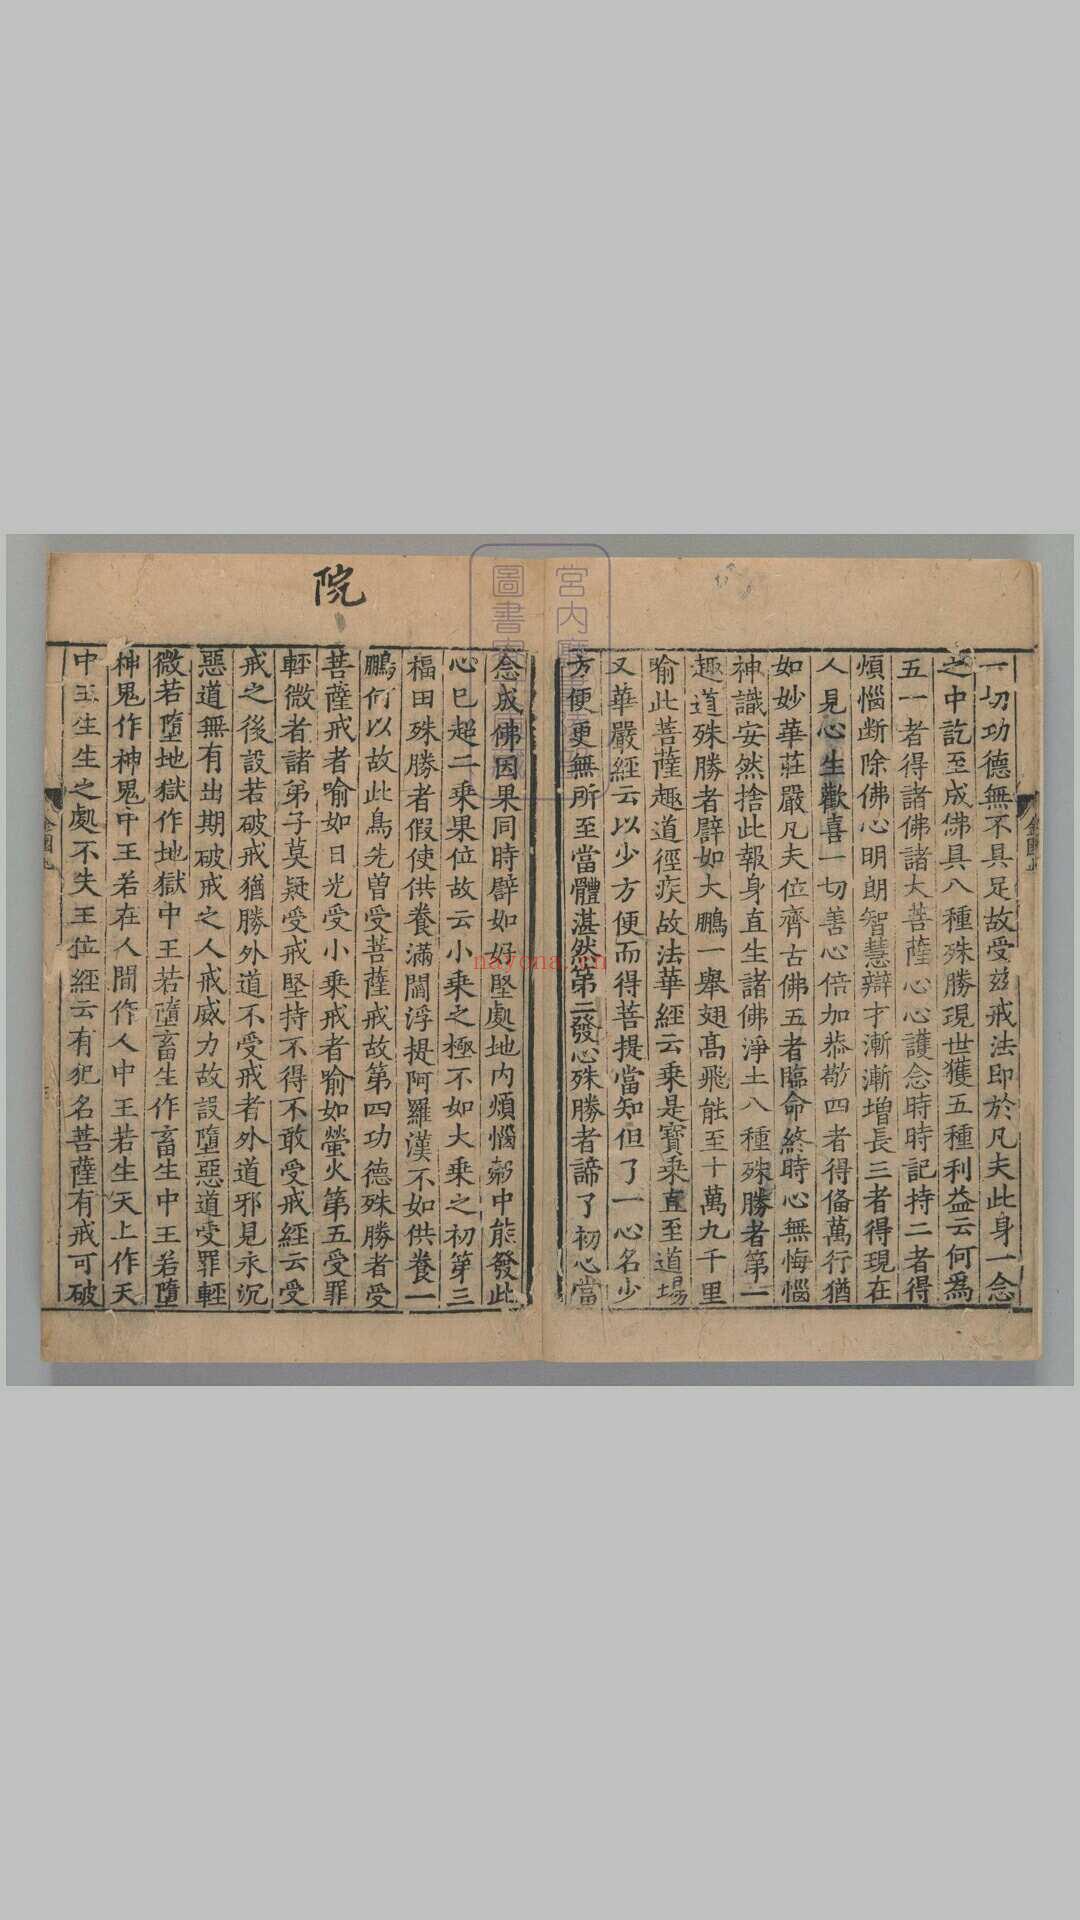 一切功德無不具足故受兹戒法即於凡夫此身一念
之中訖至成佛具八種殊勝現世獲五種利益云何爲
五一者得諸佛諸大菩薩心心護念時時記持二者得
煩惱断除佛心明朗智慧辯才漸漸增長三者得現在
人見心生歡喜一切善心倍加恭敬四者得俻萬行猶
如妙華莊嚴凡夫位齊古佛五者臨命終時心無悔惱
神識安然捨此報身直生諸佛淨土八種殊勝者第一
趣道殊勝者譬如大鵬一舉翅髙飛能至十萬九千里
喻此菩薩趣道徑疾故法華經云乗是寳乗直至道場
又華嚴經云以少方便而得菩提當知但了一心名少
方便更無所至當體湛然第二發心殊勝者諦了初心當
念成佛因果同時譬如好堅處地内煩惱㲉中能發此
心巳超二乗果位故云小乗之極不如大乗之初第三
福田殊勝者假使供養滿閻浮提阿羅漢不如供養一
鵬何以故此鳥先曽受菩薩戒故第四功德殊勝者受
菩薩戒者喻如日光受小乗戒者喻如螢火第五受罪
輕微者諸弟子莫疑受戒堅持不得不敢受戒經云受
戒之後設若破戒猶勝外道不受戒者外道邪見永沉
惡道無有出期破戒之人戒威力故設墮惡道受罪輕
微若墮地獄作地獄中王若墮畜生作畜生中王若墮
神鬼作神鬼中王若在人間作人中王若生天上作天
中王生生之處不失王位經云有犯名菩薩有戒可破
院
宮内
圖書
nayona.cn